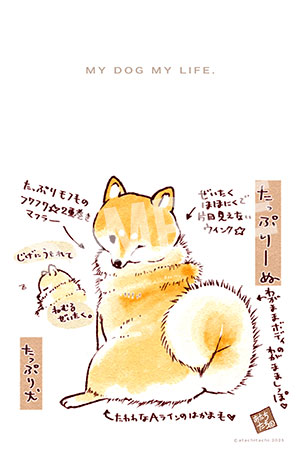 MY DOG MY LIFE.
たっぷりモフもの
フワフワ☆2重巻き
マフラー
ぜいたく
ほほにくで
片目見えない
ウインク☆
たっぷりーぬ
わがままボディの
わがまましっぽ♥
じげにうもれて
ねむる
ぜいたく。
たっぷり犬
たわわなAラインのはかまも♥